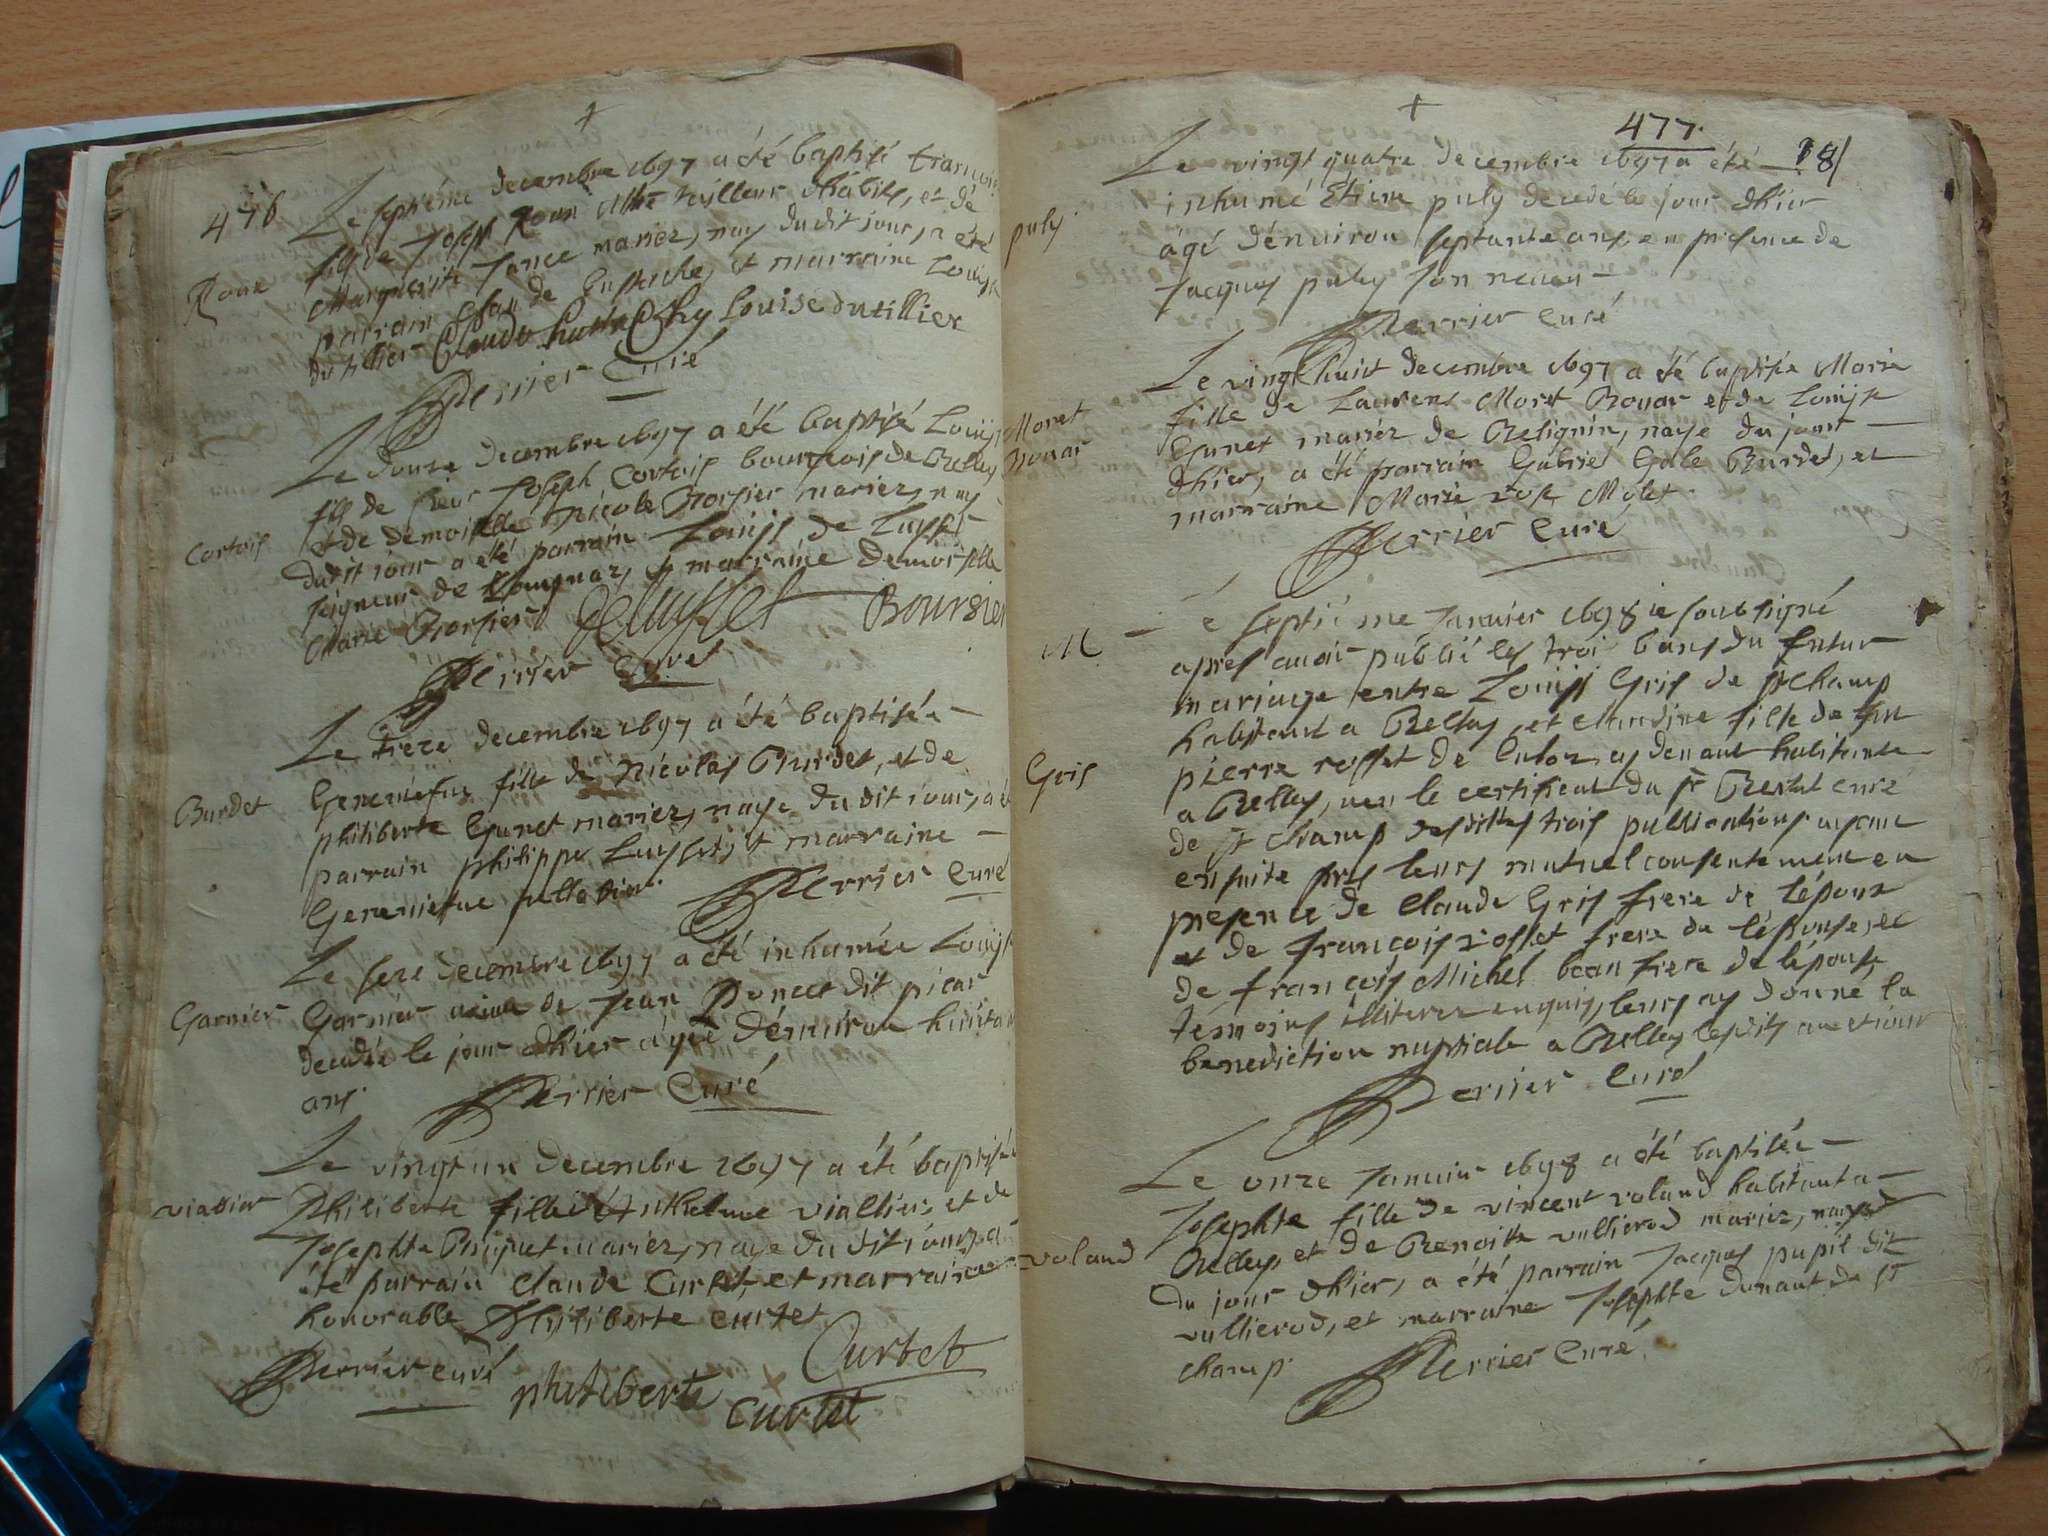 476
Le septiéme decembre 1697 a été baptisé francois
Roux
fils de Joseph Roux Mtre tailleur d'habits, et de
Marguerite Jance mariez, nay du dit jour, a été
parrain Claude Eustache, et marraine Louise
du tillier Claude hustache Louise dutillier
Perrier Curé
Le douze decembre 1697 a été baptisé Louys
fils de sieur Joseph Cortois bourgeois de Belley
Cortois
et de demoiselle Nicole Borsier mariez, nay
dudit jour a été parrain Louys de Luyset
seigneur de, et marraine demoiselle
Marie Borsier deluyset Boursier
Perrier Curé
Le treze decembre 1697 a été baptisée
Burdet
Geneniefue fille de Nicolas Burdet, et de
philiberte Gunet mariez, naye du dit jour, a été
parrain philippe Luyset, et marraine
Geneniefue
Perrier Curé
Le seze decembre 1697 a été inhumée Louyse
Garnier
Garnier veuue de Jean Poncet dit picar
decedée le jour d'hier ágée d'enuiron huitante
ans.
Perrier Curé
Le vingt un decembre 1697 a été baptisée
viallier
Philiberte fille d'Anthelme viallier, et de
Josephte Piquet mariez, naye du dit jour, a
été parrain Claude Curtet, et marraine
honorable Philiberte curtet
Perrier curé
Curtet
philiberte curtet
477
181
Le vingt quatre decembre 1697 a été
puly
inhumé Etiene puly decedé le jour d'hier
ágé d'enuiron septante ans, en presence de
Jacques puly son neueu
Perrier Curé
Le vingt huict decembre 1697 a été baptisée Marie
Moret
Bouar
fille de Laurens Moret Bouar et de Louyse
Gunet mariez de Belignin, naye du jour
d'hier, a été parrain Gabriel Gale Burdet, et
marraine Marie rose Molet
Perrier Curé
M
Le septiéme Januier 1698 ie soubsigné
apres auoir publié les trois bans du futur
mariage entre Louys Gris de st Champ
habitant a Belley, et Claudine fille de feu
Gris
pierre rosset de, cy deuant habitante
a Belley, ueu le certificat du sr curé
de st champ desdittes trois publications, ayant
ensuite pris leurs mutuel consentement en
presence de Claude Gris frere de l'époux
et de francois rosset frere de l'épouse, et
de francois Michel beau frere de l'épouse
témoins illiterez enquis, leurs ay donné la
benediction nuptiale a Belley lesdits an et jour
Perrier Curé
Le onze Januier 1698 a été baptisée
voland
Josephte fille de vincent voland habitant a
Belley, et de Benoitte vullierod mariez, naye
du jour d'hier, a été parrain Jacques pupil dit
vullierod, et marraine Josephte dunant de st
champ.
Perrier Curé